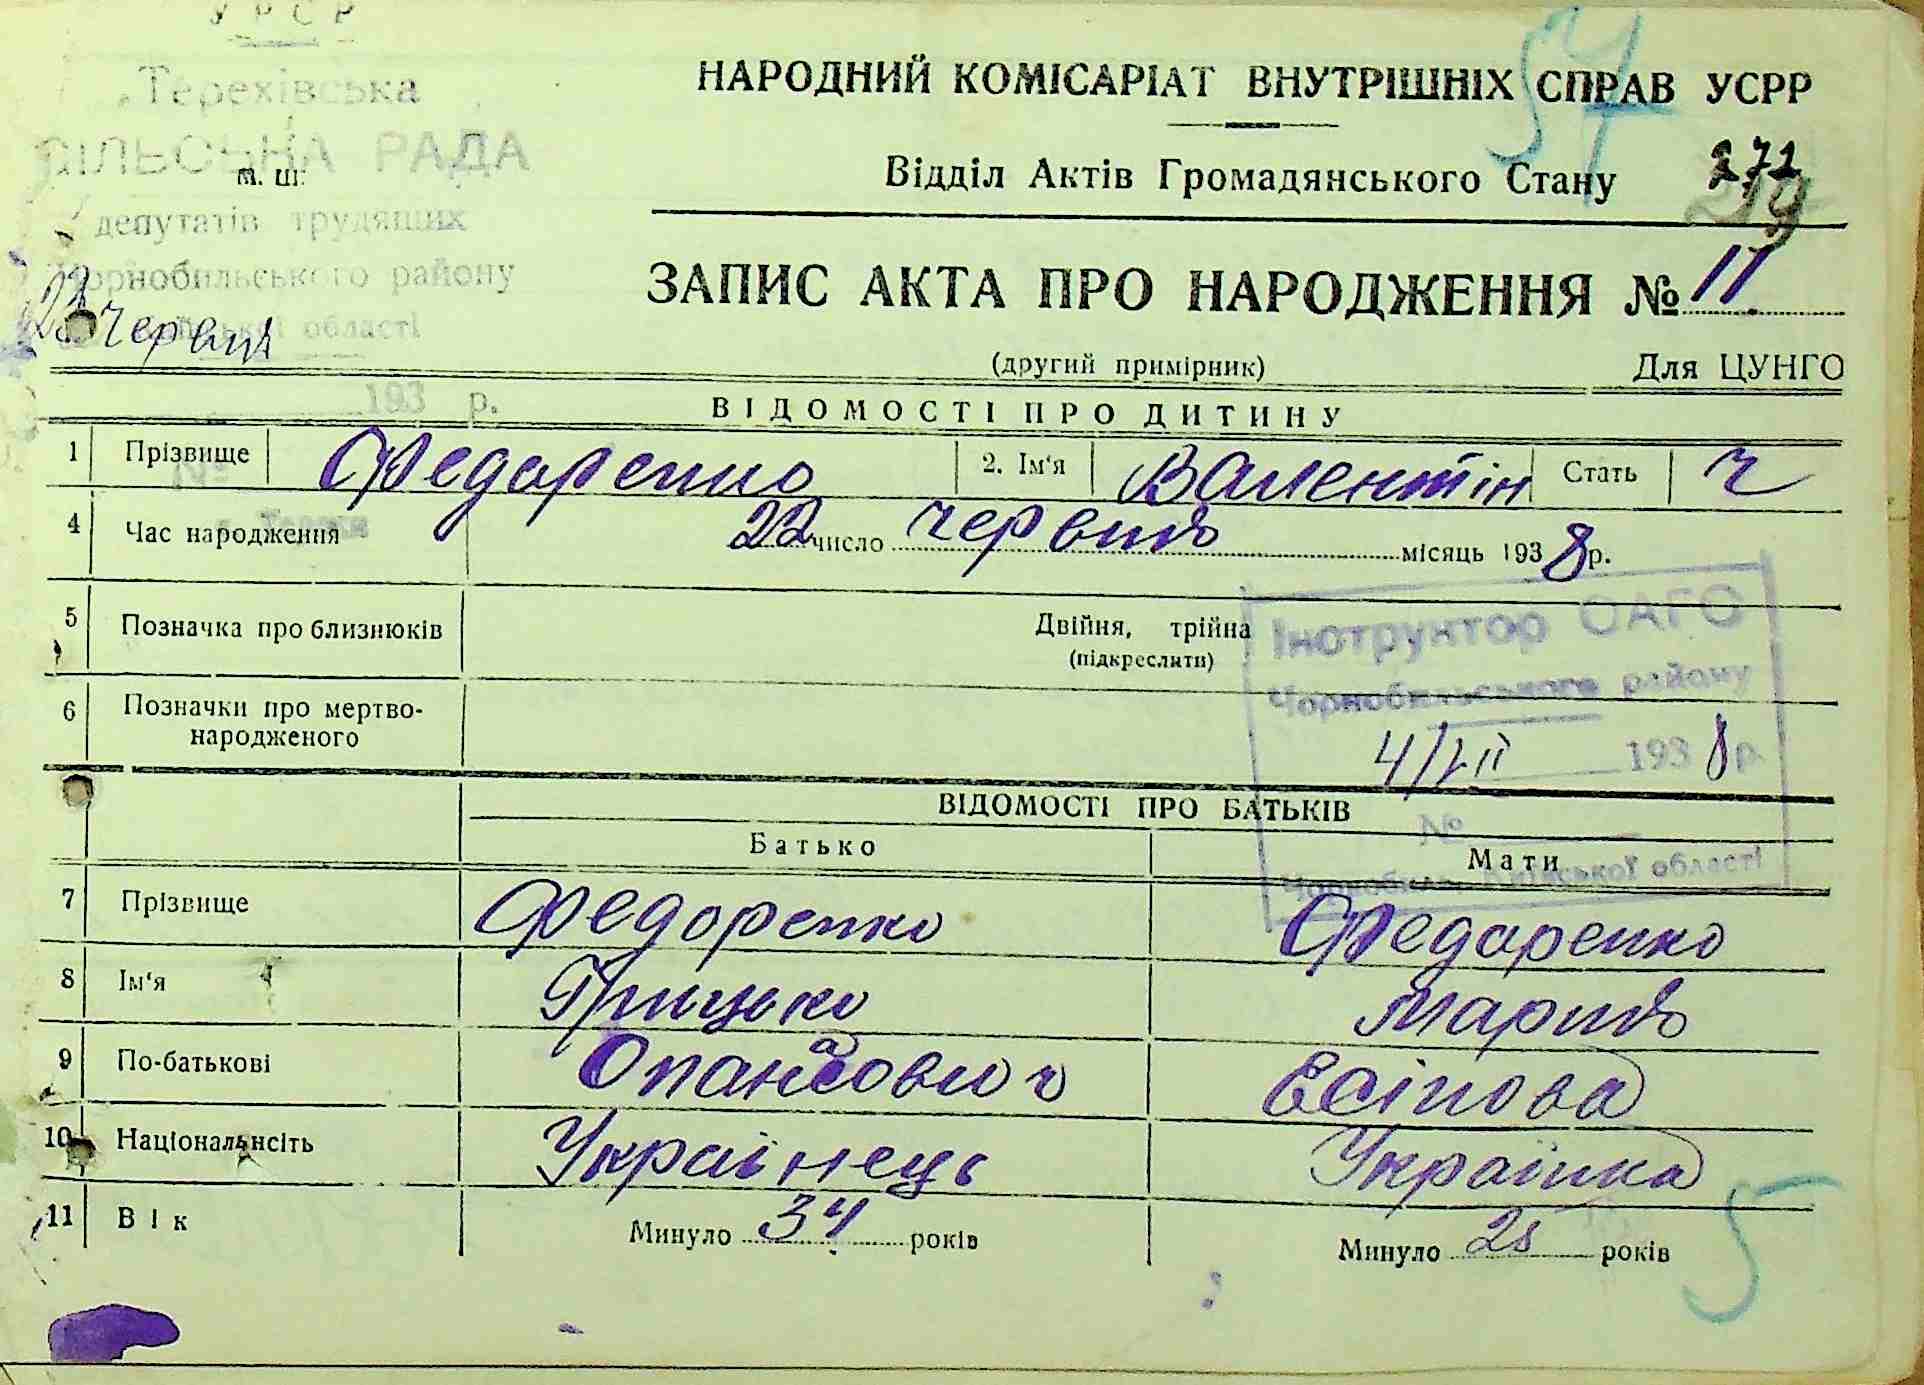 УРСР
Терехівська
СІЛЬСЬКА РАДА
м. ш.
депутатів трудящих
Чорнобильського району
Київської області
23 червня
193 р.
№
с. Терехи
57
НАРОДНИЙ КОМІСАРІАТ ВНУТРІШНІХ СПРАВ УСРР
Відділ Актів Громадянського Стану
271
219
ЗАПИС АКТА ПРО НАРОДЖЕННЯ № 17
(другий примірник) Для ЦУНГО
ВІДОМОСТІ ПРО ДИТИНУ
1 Прізвище Федаренко 2. Ім'я Валентін Стать ч
4 Час народження 22 число червня місяць 1938 р.
5 Позначка про близнюків Двійня, трійня
(підкреслити)
6 Позначки про мертво-
народженого
Інструктор ОАГС
Чорнобильського району
4/VII 1938 р.
№
Чорнобиль, Київської області
ВІДОМОСТІ ПРО БАТЬКІВ
Батько Мати
7 Прізвище Федоренко Федаренко
8 Ім'я Грицько Мария
9 По-батькові Опанасович Есіпова
10 Національнсіть Українець Українка
11 Вік Минуло 34 років Минуло 25 років
5